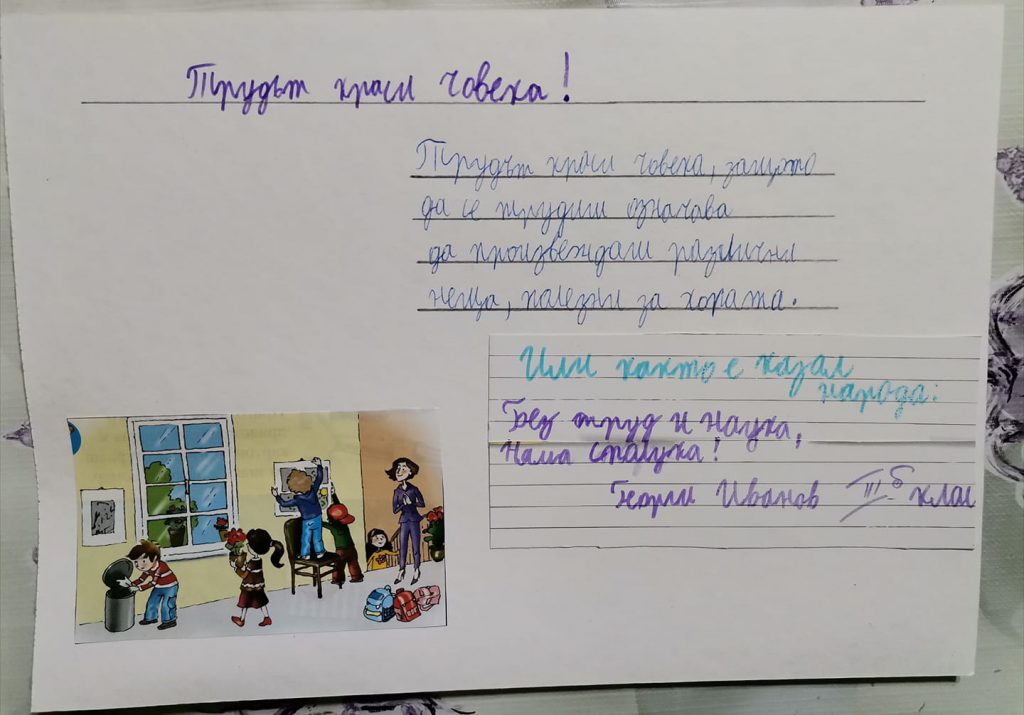 Трудът краси човека!
Трудът краси човека, защото
да се трудиш означава
да произвеждаш различни
неща, полезни за хората.
Или както е казал
народа:
Без труд и наука,
няма сполука!
Георги Иванов III б клас